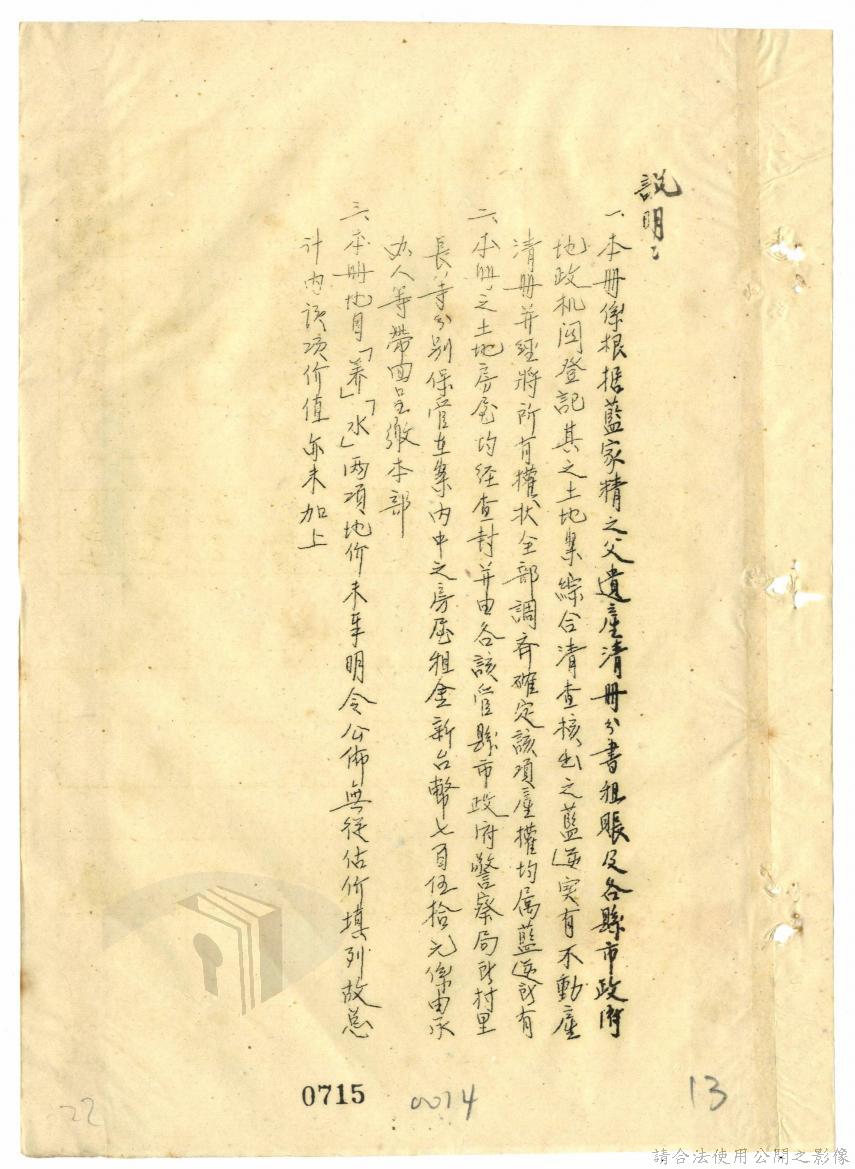 說明：
一、本冊係根据藍家精之父遺產清冊分書租賬及各縣市政府
地政机関登記其之土地集綜合清查核出之藍逆実有不動產
清冊并經將所有權狀全部調齊確定該項產權均属藍逆所有
二、本冊之土地房屋均经查封并由各該管縣市政府警察局所村里
長等分別保管在案內中之房屋租金新台幣七百伍拾元係由承
租人等帶回呈繳本部
三、本冊地目「养」「水」两項地价未奉明令公佈無從估价填列故总
计内該项价值亦未加上
0715
0074
13
22
請合法使用公開之影像